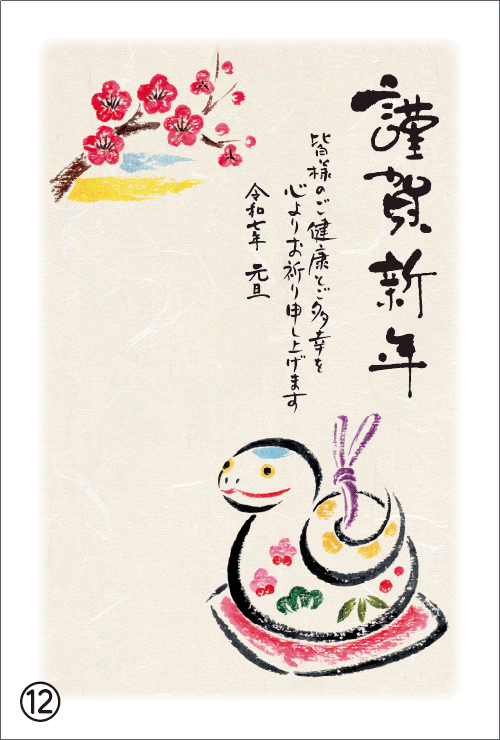 謹賀新年
皆様のご健康とご多幸を
心よりお祈り申し上げます
令和七年 元旦
⑫